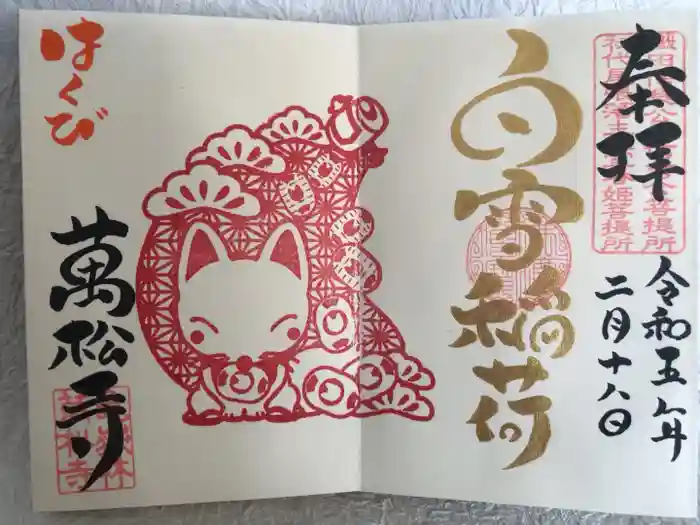 奉拝
令和五年
二月十八日
白雪稲荷
はくび
萬松寺